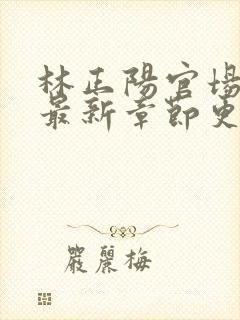 林正陽官場
最新章節更
嚴麗梅